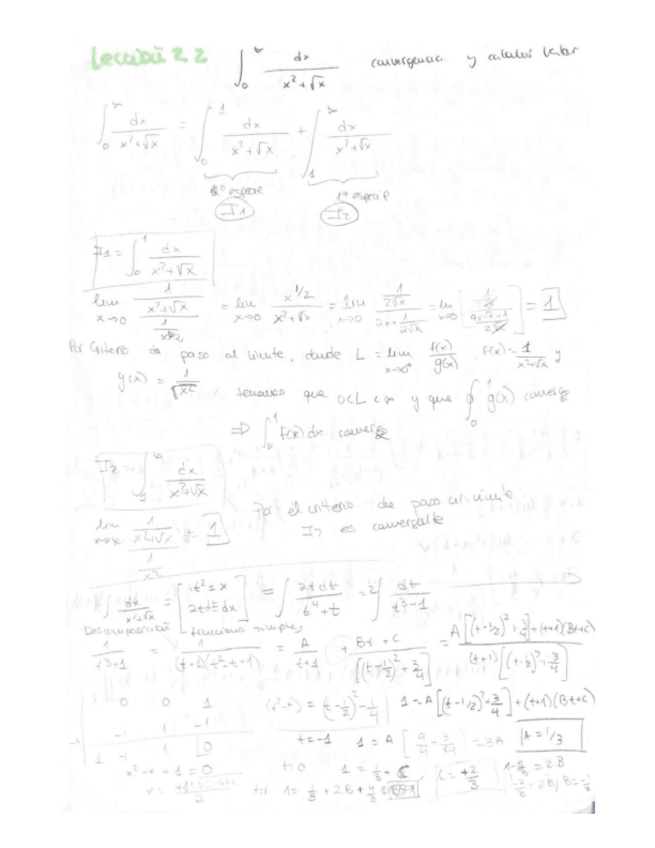 Lección 2.2 ∫₀^∞ dx/(x²+√x) convergencia y calcular valor
∫₀^∞ dx/(x²+√x) = ∫₀¹ dx/(x²+√x) + ∫₁^∞ dx/(x²+√x)
2ª especie 1ª especie
I₁ I₂
I₁ = ∫₀¹ dx/(x²+√x)
lim x→0 (1/(x²+√x))/(1/x^1/2) = lim x→0 x^1/2/(x²+√x) = lim x→0 (1/(2√x))/(2x+1/(2√x)) = lim x→0 = 1
Por Criterio de paso al límite, donde L = lim x→0⁺ f(x)/g(x) . f(x) = 1/(x²+√x) y
g(x) = tenemos que 0<L<∞ y que ∫₀¹ g(x) converge
⇒ ∫₀¹ f(x)dx converge
I₂ = ∫₁^∞ dx/(x²+√x)
Por el criterio de paso al límite
lim x→∞ (1/(x²+√x))/(1/x²) = 1 I₂ es convergente
∫ dx/(x²+√x) = [t² = x 2tdt = dx] = ∫ 2t dt/(t⁴+t) = 2∫ dt/(t³-1)
Descomposición fracciones simples
1/(t³+1) = 1/((t+1)(t²-t+1)) = A/(t+1) + (Bt+C)/[(t-1/2)²+3/4] = (A[(t-1/2)²+3/4]+(t+1)(Bt+C))/((t+1)[(t-1/2)²+3/4])
1 0 0 1 (t²-t) = (t-1/2)²-1/4 1 = A[(t-1/2)²+3/4]+(t+1)(Bt+C)
-1 1 -1 t=-1 1 = A[9/4+3/4] = 3A A = 1/3
1 -1 1 0
x²-x+1=0 t=0 1 = 1/3 + C C = +2/3
t=1 1 = 1/3 + 2B + 4/3 = 2B B = -1/3